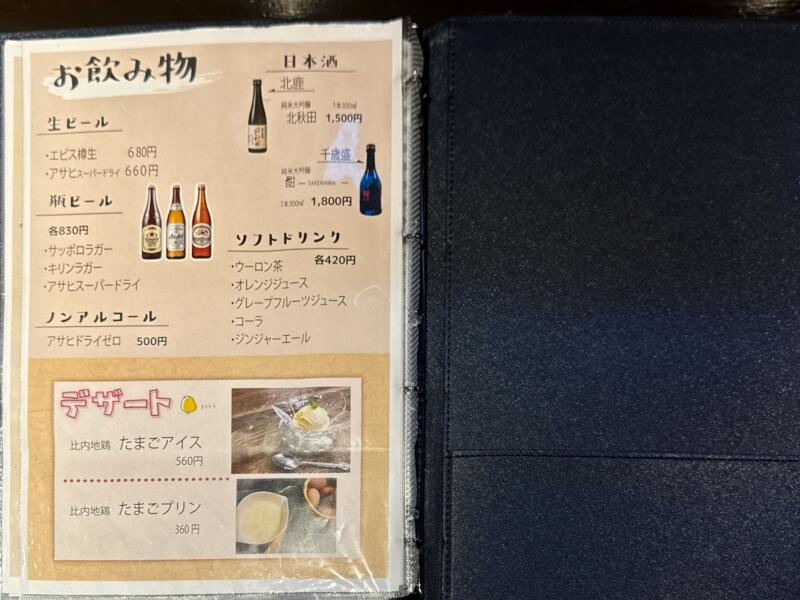 お飲み物
生ビール
・エビス樽生 680円
・アサヒスーパードライ 660円
瓶ビール
各830円
・サッポロラガー
・キリンラガー
・アサヒスーパードライ
ノンアルコール
アサヒドライゼロ 500円
日本酒
北鹿
純米大吟醸 1本300㎖
北秋田 1,500円
千歳盛
純米大吟醸
酣 ― TAKENAWA ―
1本300㎖ 1,800円
ソフトドリンク
各420円
・ウーロン茶
・オレンジジュース
・グレープフルーツジュース
・コーラ
・ジンジャーエール
デザート
比内地鶏 たまごアイス
560円
比内地鶏 たまごプリン
360円
Asahi